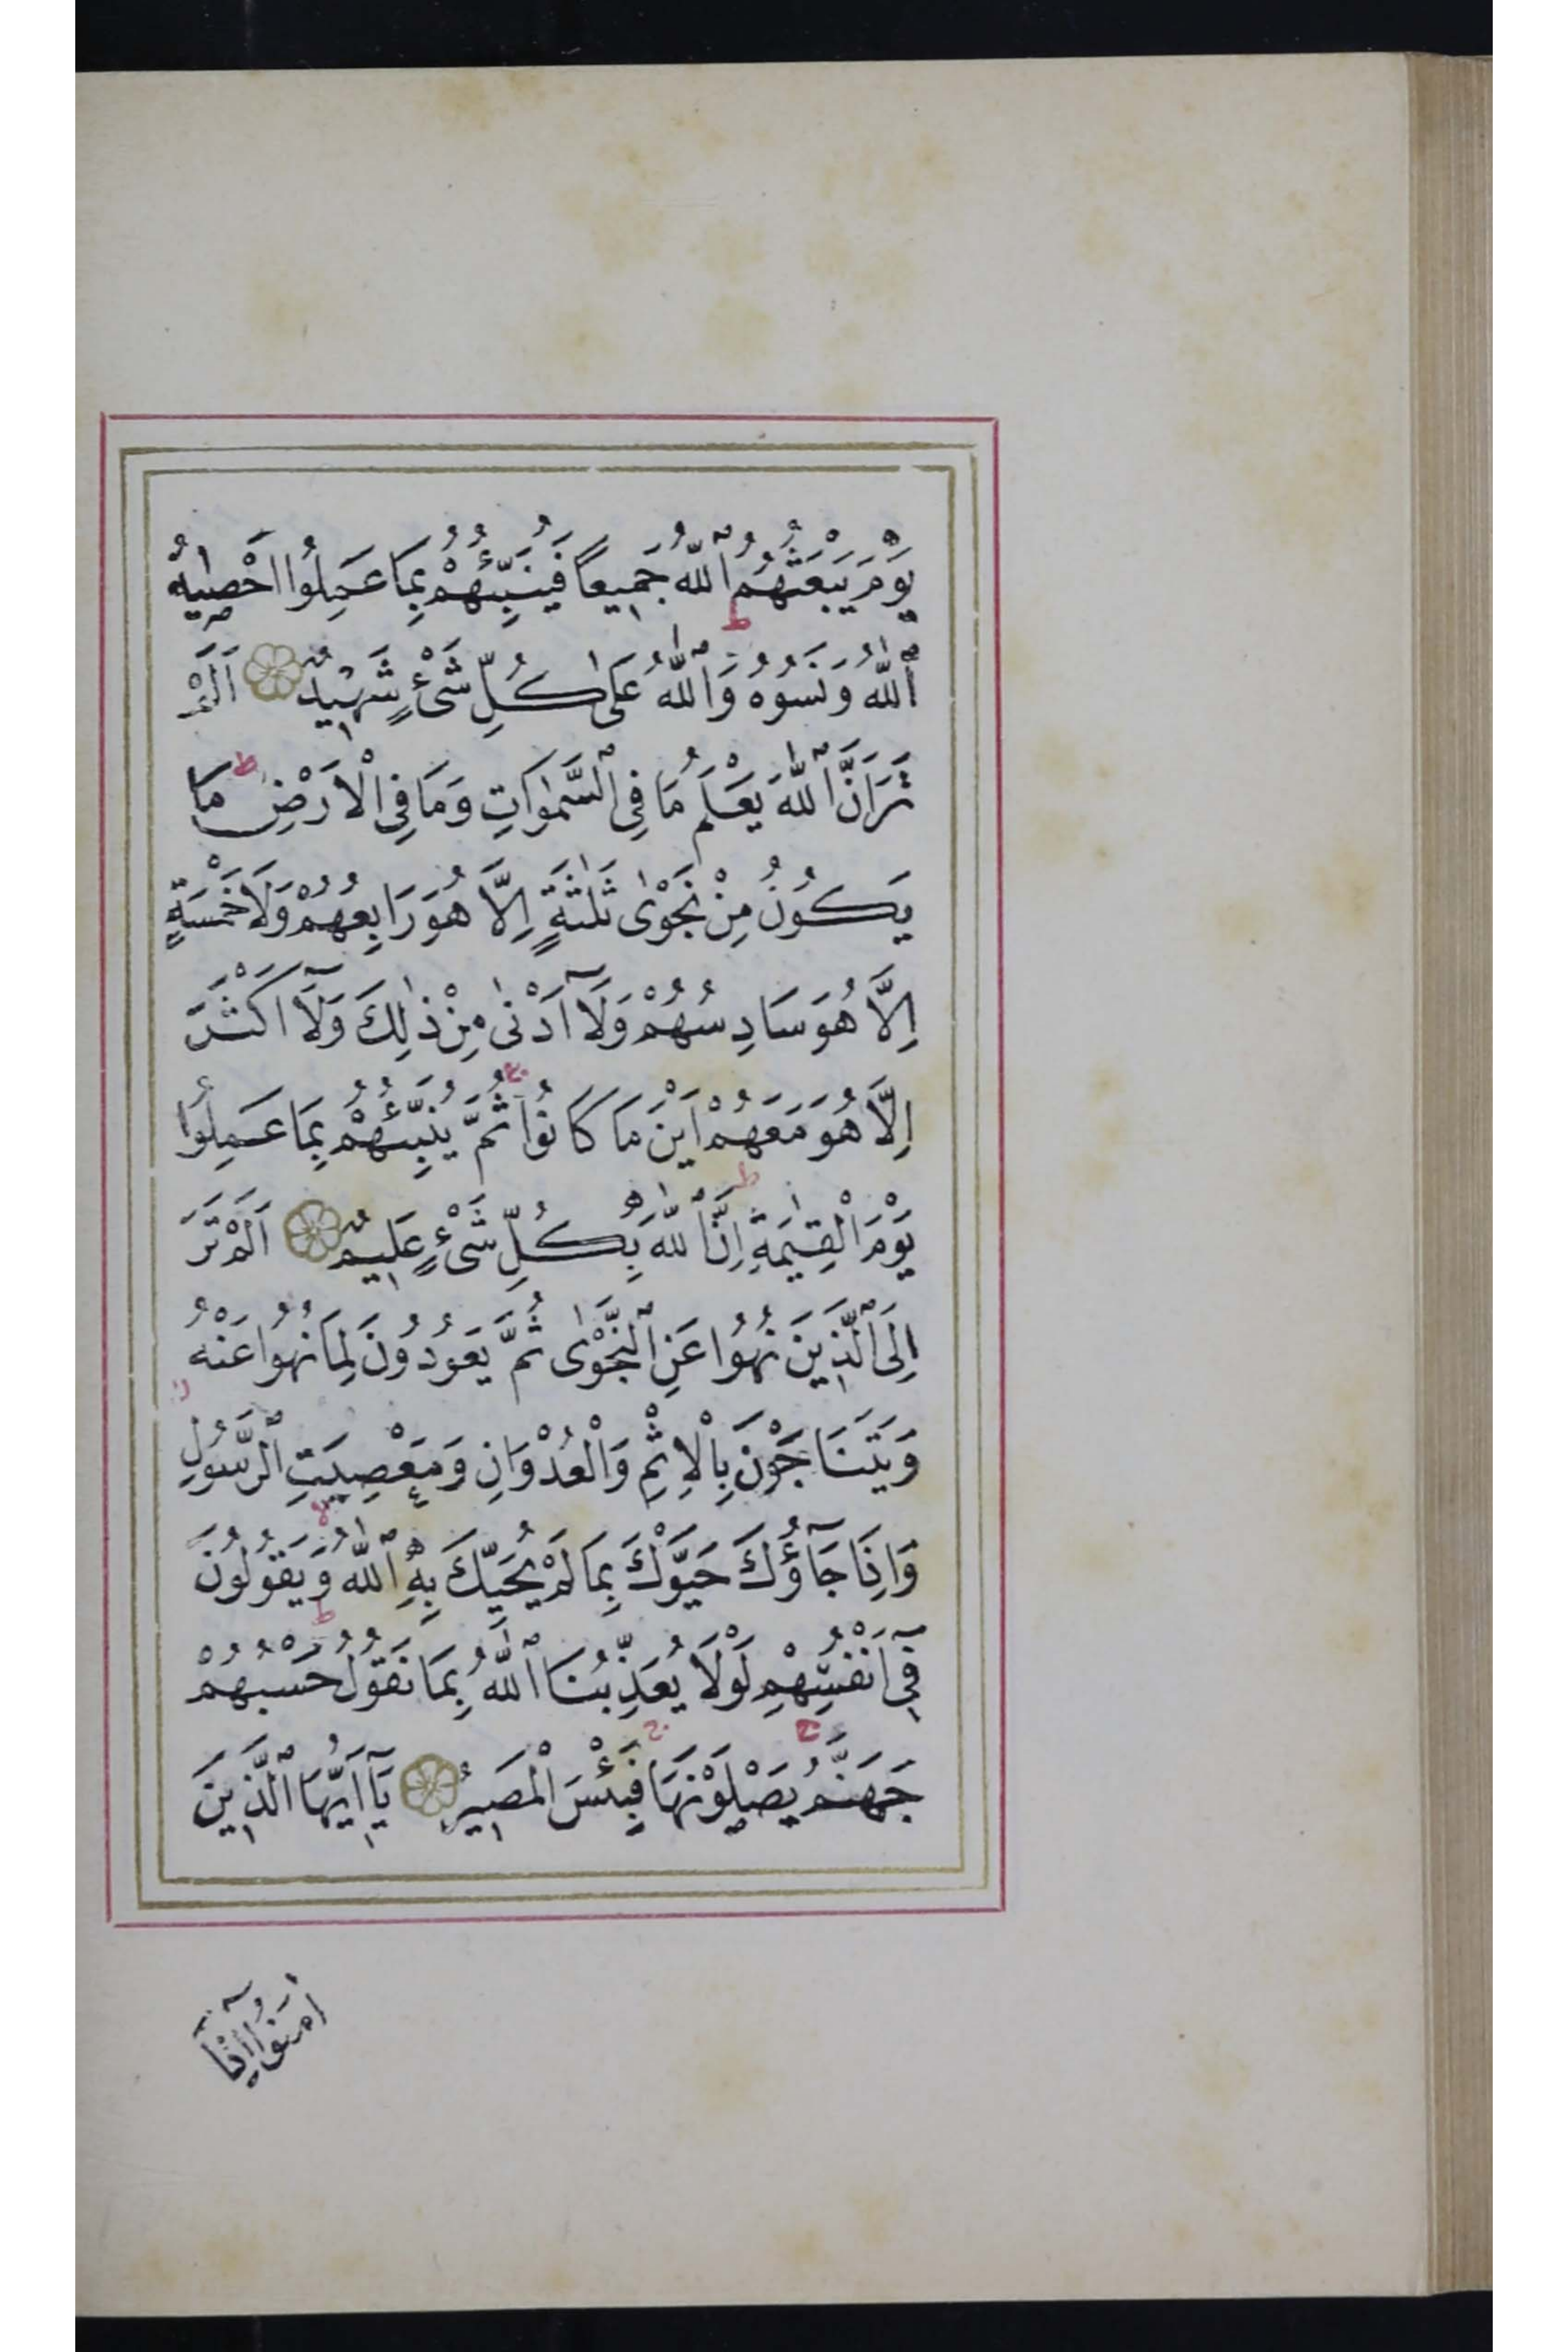 يَوْمَ يَبْعَثُهُمُ ٱللّٰهُ جَمِيعاً فَيُنَبِّئُهُمْ بِمَا عَمِلُوا اَحْصٰيهُ
ٱللّٰهُ وَنَسُوهُ ط وَٱللّٰهُ عَلٰى كُلِّ شَىْءٍ شَهِيدٌ اَلَمْ
تَرَ اَنَّ ٱللّٰهَ يَعْلَمُ مَا فِى ٱلسَّمٰوَاتِ وَمَا فِى الْاَرْضِ ط مَا
يَكُونُ مِنْ نَجْوٰى ثَلٰثَةٍ اِلَّا هُوَ رَابِعُهُمْ وَلَا خَمْسَةٍ
اِلَّا هُوَ سَادِسُهُمْ وَلَآ اَدْنٰى مِنْ ذٰلِكَ وَلَآ اَكْثَرَ
اِلَّا هُوَ مَعَهُمْ اَيْنَ مَا كَانُوا ج ثُمَّ يُنَبِّئُهُمْ بِمَا عَمِلُوا
يَوْمَ الْقِيٰمَةِ ط اِنَّ ٱللّٰهَ بِكُلِّ شَىْءٍ عَلِيمٌ اَلَمْ تَرَ
اِلَى ٱلَّذِينَ نُهُوا عَنِ ٱلنَّجْوٰى ثُمَّ يَعُودُونَ لِمَا نُهُوا عَنْهُ
وَيَتَنَاجَوْنَ بِالْاِثْمِ وَالْعُدْوَانِ وَمَعْصِيَتِ ٱلرَّسُولِ ز
وَاِذَا جَآؤُكَ حَيَّوْكَ بِمَا لَمْ يُحَيِّكَ بِهِ ٱللّٰهُ لا وَيَقُولُونَ
فِىٓ اَنْفُسِهِمْ لَوْلَا يُعَذِّبُنَا ٱللّٰهُ بِمَا نَقُولُ ط حَسْبُهُمْ
جَهَنَّمُ ج يَصْلَوْنَهَا ج فَبِئْسَ الْمَصِيرُ يَآ اَيُّهَا ٱلَّذِينَ
اٰمَنُوٓا اِذَا